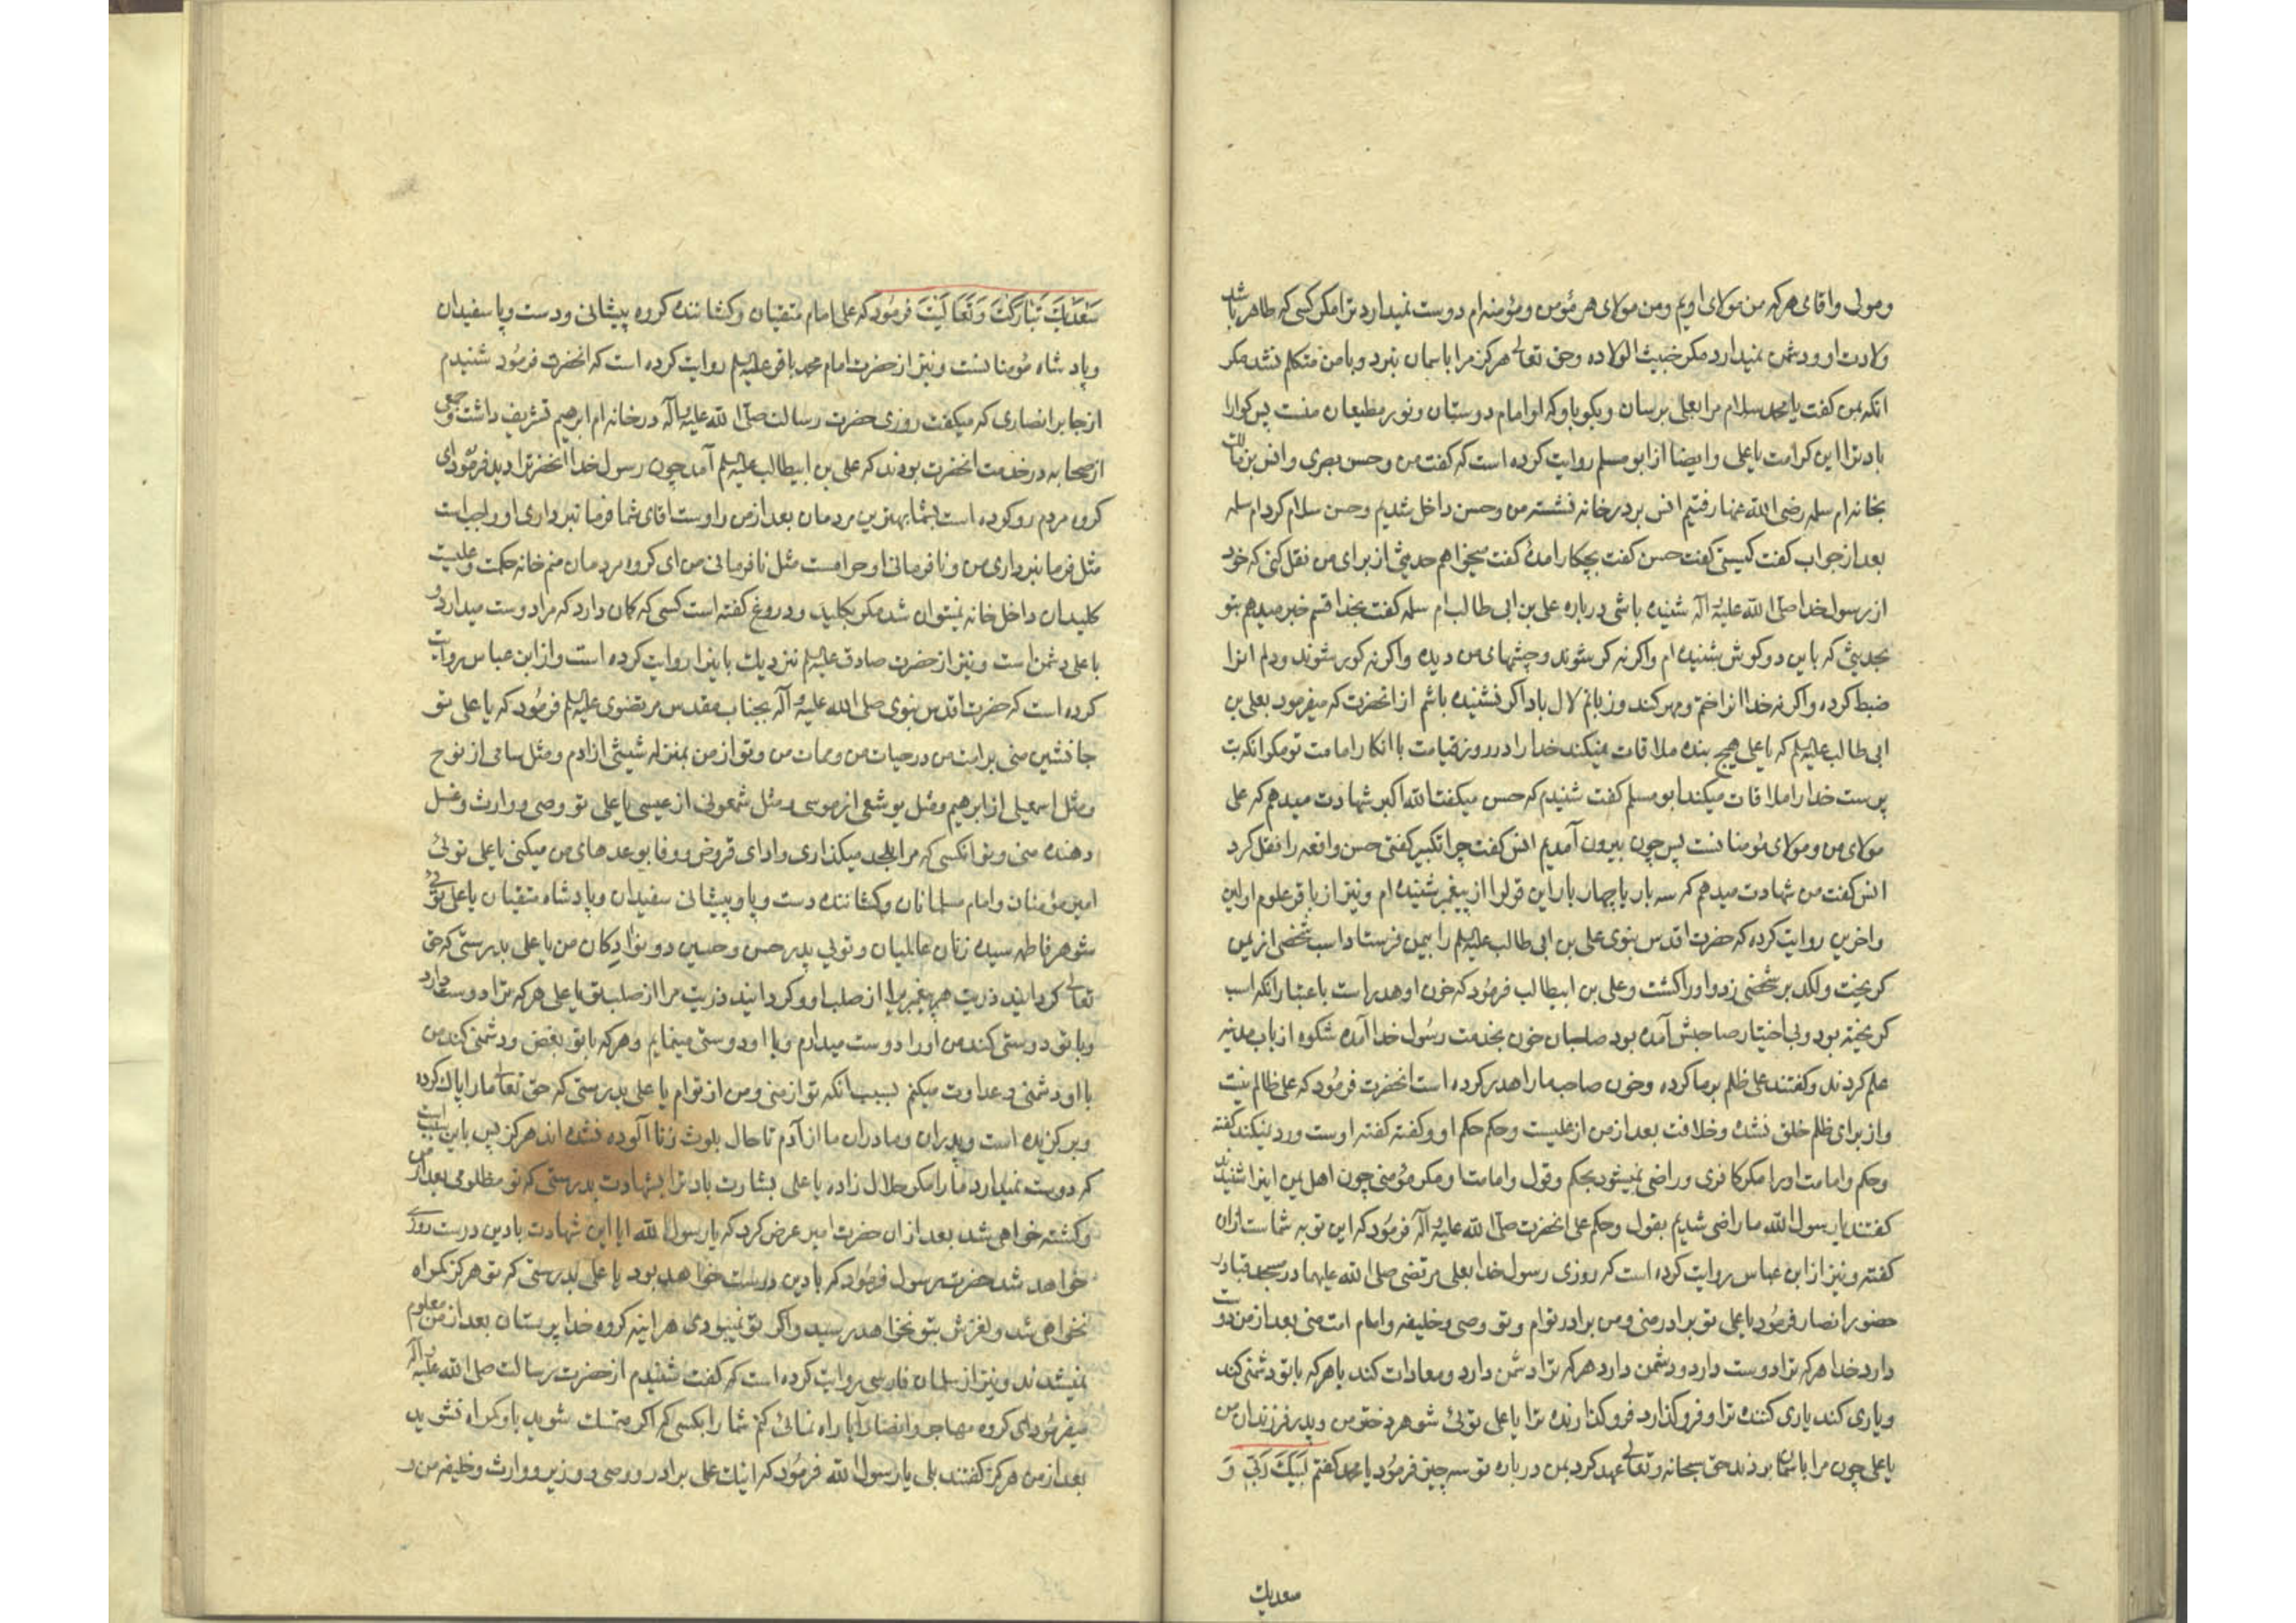 ومولی واقای هرکه من مولای اویم ومن مولای هر مؤمن ومؤمنه ام دوست نمیدارد ترا مکر کسی که طاهر باشد
ولادت او ودشمن نمیدارد مکر خبیث الولاده وحق تعالی هرکز مرا باسمان نبرد وبا من متکلم نشد مکر
انکه بمن کفت یا محمد سلام مرا بعلی برسان وبکو باو که او امام دوستان ونور مطیعان منست پس کوارا
باد ترا این کرامت یا علی وایضا از ابو مسلم روایت کرده است که کفت من وحسن بصری وانس بن مالک
بخانه ام سلمه رضی الله عنها رفتیم انس بر در خانه نشسته من وحسن داخل شدیم وحسن سلام کرد ام سلمه
بعد از جواب کفت کیستی کفت حسن کفت بچکار امدۀ کفت میخواهم حدیثی از برای من نقل کنی که خود
از رسول خدا صلّی الله علیه وآله شنیده باشی درباره علی بن ابی طالب ام سلمه کفت بخدا قسم خبر میدهم بتو
بحدیثی که باین دو کوش شنیده ام واکر نه کر شوند وچشمهای من دیده واکر نه کور شوند ودلم انرا
ضبط کرده واکر نه خدا انرا ختم ومهر کند وزبانم لال باد اکر نشنیده باشم از انحضرت که میفرمود بعلی بن
ابی طالب علیه السلم که یا علی هیچ بنده ملاقات نمیکند خدا را در روز قیامت با انکار امامت تو مکر انکه بت
پرست خدا را ملاقات میکند ابو مسلم کفت شنیدم که حسن میکفت الله اکبر شهادت میدهم که علی
مولای من ومولای مؤمنانست پس چون بیرون آمدیم انس کفت چرا تکبیر کفتی حسن واقعه را نقل کرد
انس کفت من شهادت میدهم که سه بار یا چهار بار این قول را از پیغمبر شنیده ام ونیز از باقر علوم اولین
واخرین روایت کرده که حضرت اقدس نبوی علی بن ابی طالب علیه السلم را بیمن فرستاد اسب شخصی از یمن
کریخت ولکد بر شخصی زد واورا کشت وعلی بن ابیطالب فرمود که خون او هدر است باعتبار انکه اسب
کریخته بود وبی اختیار صاحبش آمده بود صاحبان خون بخدمت رسول خدا آمده شکوه از باب مدینه
علم کردند وکفتند علی ظلم بر ما کرده وخون صاحب ما را هدر کرده است انحضرت فرمود که علی ظالم نیست
واز برای ظلم خلق نشده وخلافت بعد از من از علیست وحکم حکم او وکفته کفته اوست ورد نمیکند کفته
وحکم وامامت اورا مکر کافری وراضی نمیشود بحکم وقول وامامت او مکر مؤمنی چون اهل یمن اینرا شنیدند
کفتند یا رسول الله ما راضی شدیم بقول وحکم علی انحضرت صلّی الله علیه وآله فرمود که این توبه شماست ازان
کفته ونیز از ابن عباس روایت کرده است که روزی رسول خدا بعلی مرتضی صلی الله علیهما در مسجد قبا در
حضور انصار فرمود یا علی تو برادر منی ومن برادر توام وتو وصی وخلیفه وامام امت منی بعد از من دوست
دارد خدا هرکه ترا دوست دارد ودشمن دارد هرکه ترا دشمن دارد ومعادات کند با هرکه با تو دشمنی کند
ویاری کند یاری کننده ترا وفرو کذارد فرو کذارنده ترا یا علی توئی شوهر دختر من وپدر فرزندان من
یا علی چون مرا باسمان بردند حق سبحانه وتعالی عهد کرد بمن درباره تو سه چیز فرمود یا محمد کفتم لَبَّیْکَ رَبّی وَ
سعدیک
سَعْدَیْکَ تَبَارَکْتَ وَتَعَالَیْتَ فرمود که علی امام متقیان وکشاننده کروه پیشانی ودست وپا سفیدان
وپادشاه مؤمنانست ونیز از حضرت امام محمد باقر علیه السلم روایت کرده است که انحضرت فرمود شنیدم
از جابر انصاری که میکفت روزی حضرت رسالت صلّی الله علیه وآله در خانه ام ابرهیم تشریف داشت وجمعی
از صحابه در خدمت انحضرت بودند که علی بن ابیطالب علیه السلم آمد چون رسول خدا انحضرترا دید فرمود ای
کروه مردم رو کرده است بشما بهترین مردمان بعد از من واوست اقای شما فرمانبرداری او واجب است
مثل فرمانبرداری من ونافرمانی او حرامست مثل نافرمانی من ای کروه مردمان منم خانه حکمت وعلیست
کلید ان داخل خانه نمیتوان شد مکر بکلید ودروغ کفته است کسی که کمان دارد که مرا دوست میدارد و
با علی دشمن است ونیز از حضرت صادق علیه السلم نزدیک باینرا روایت کرده است واز ابن عباس روایت
کرده است که حضرت اقدس نبوی صلی الله علیه وآله بجناب مقدس مرتضوی علیه السلم فرمود که یا علی تو
جانشین منی بر امت من در حیات من وممات من وتو از من بمنزله شیثی از ادم ومثل سامی از نوح
ومثل اسمعیلی از ابرهیم ومثل یوشعی از موسی ومثل شمعونی از عیسی یا علی تو وصی ووارث وغسل
دهنده منی وتو انکسی که مرا بلحد میکذاری وادای قروض ووفا بوعدهای من میکنی یا علی توئی
امیر مؤمنان وامام مسلمانان وکشاننده دست وپا وپیشانی سفیدان وپادشاه متقیان یا علی توئی
شوهر فاطمه سیده زنان عالمیان وتوئی پدر حسن وحسین دو نوادکان من یا علی بدرستی که حق
تعالی کردانید ذریت هر پیغمبریرا از صلب او وکردانید ذریت مرا از صلب تو یا علی هرکه ترا دوست دارد
وبا تو دوستی کند من اورا دوست میدارم وبا او دوستی مینمایم وهرکه با تو بغض ودشمنی کند من
با او دشمنی وعداوت میکنم بسبب انکه تو از منی ومن از توام یا علی بدرستی که حق تعالی ما را پاک کرده
وبرکزیده است وپدران ومادران ما از آدم تا حال بلوث زنا آلوده نشده اند هرکز پس باین سبب است
که دوست نمیدارد ما را مکر حلال زاده یا علی بشارت باد ترا بشهادت بدرستی که تو مظلومی بعد از من
وکشته خواهی شد بعد ازان حضرت امیر عرض کرد که یا رسول الله ایا این شهادت با دین درست روزی
خواهد شد حضرت رسول فرمود که با دین درست خواهد بود یا علی بدرستی که تو هرکز کمراه
نخواهی شد ولغزش بتو نخواهد رسید واکر تو نمیبودی هراینه کروه خدا پرستان بعد از من معلوم
نمیشدند ونیز از سلمان فارسی روایت کرده است که کفت شنیدم از حضرت رسالت صلی الله علیه وآله
میفرمود ای کروه مهاجر وانصار آیا راه نمائی کنم شما را بکسی که اکر متمسک شوید باو کمراه نشوید
بعد از من هرکز کفتند بلی یا رسول الله فرمود که اینک علی برادر ووصی ووزیر ووارث وخلیفه من و